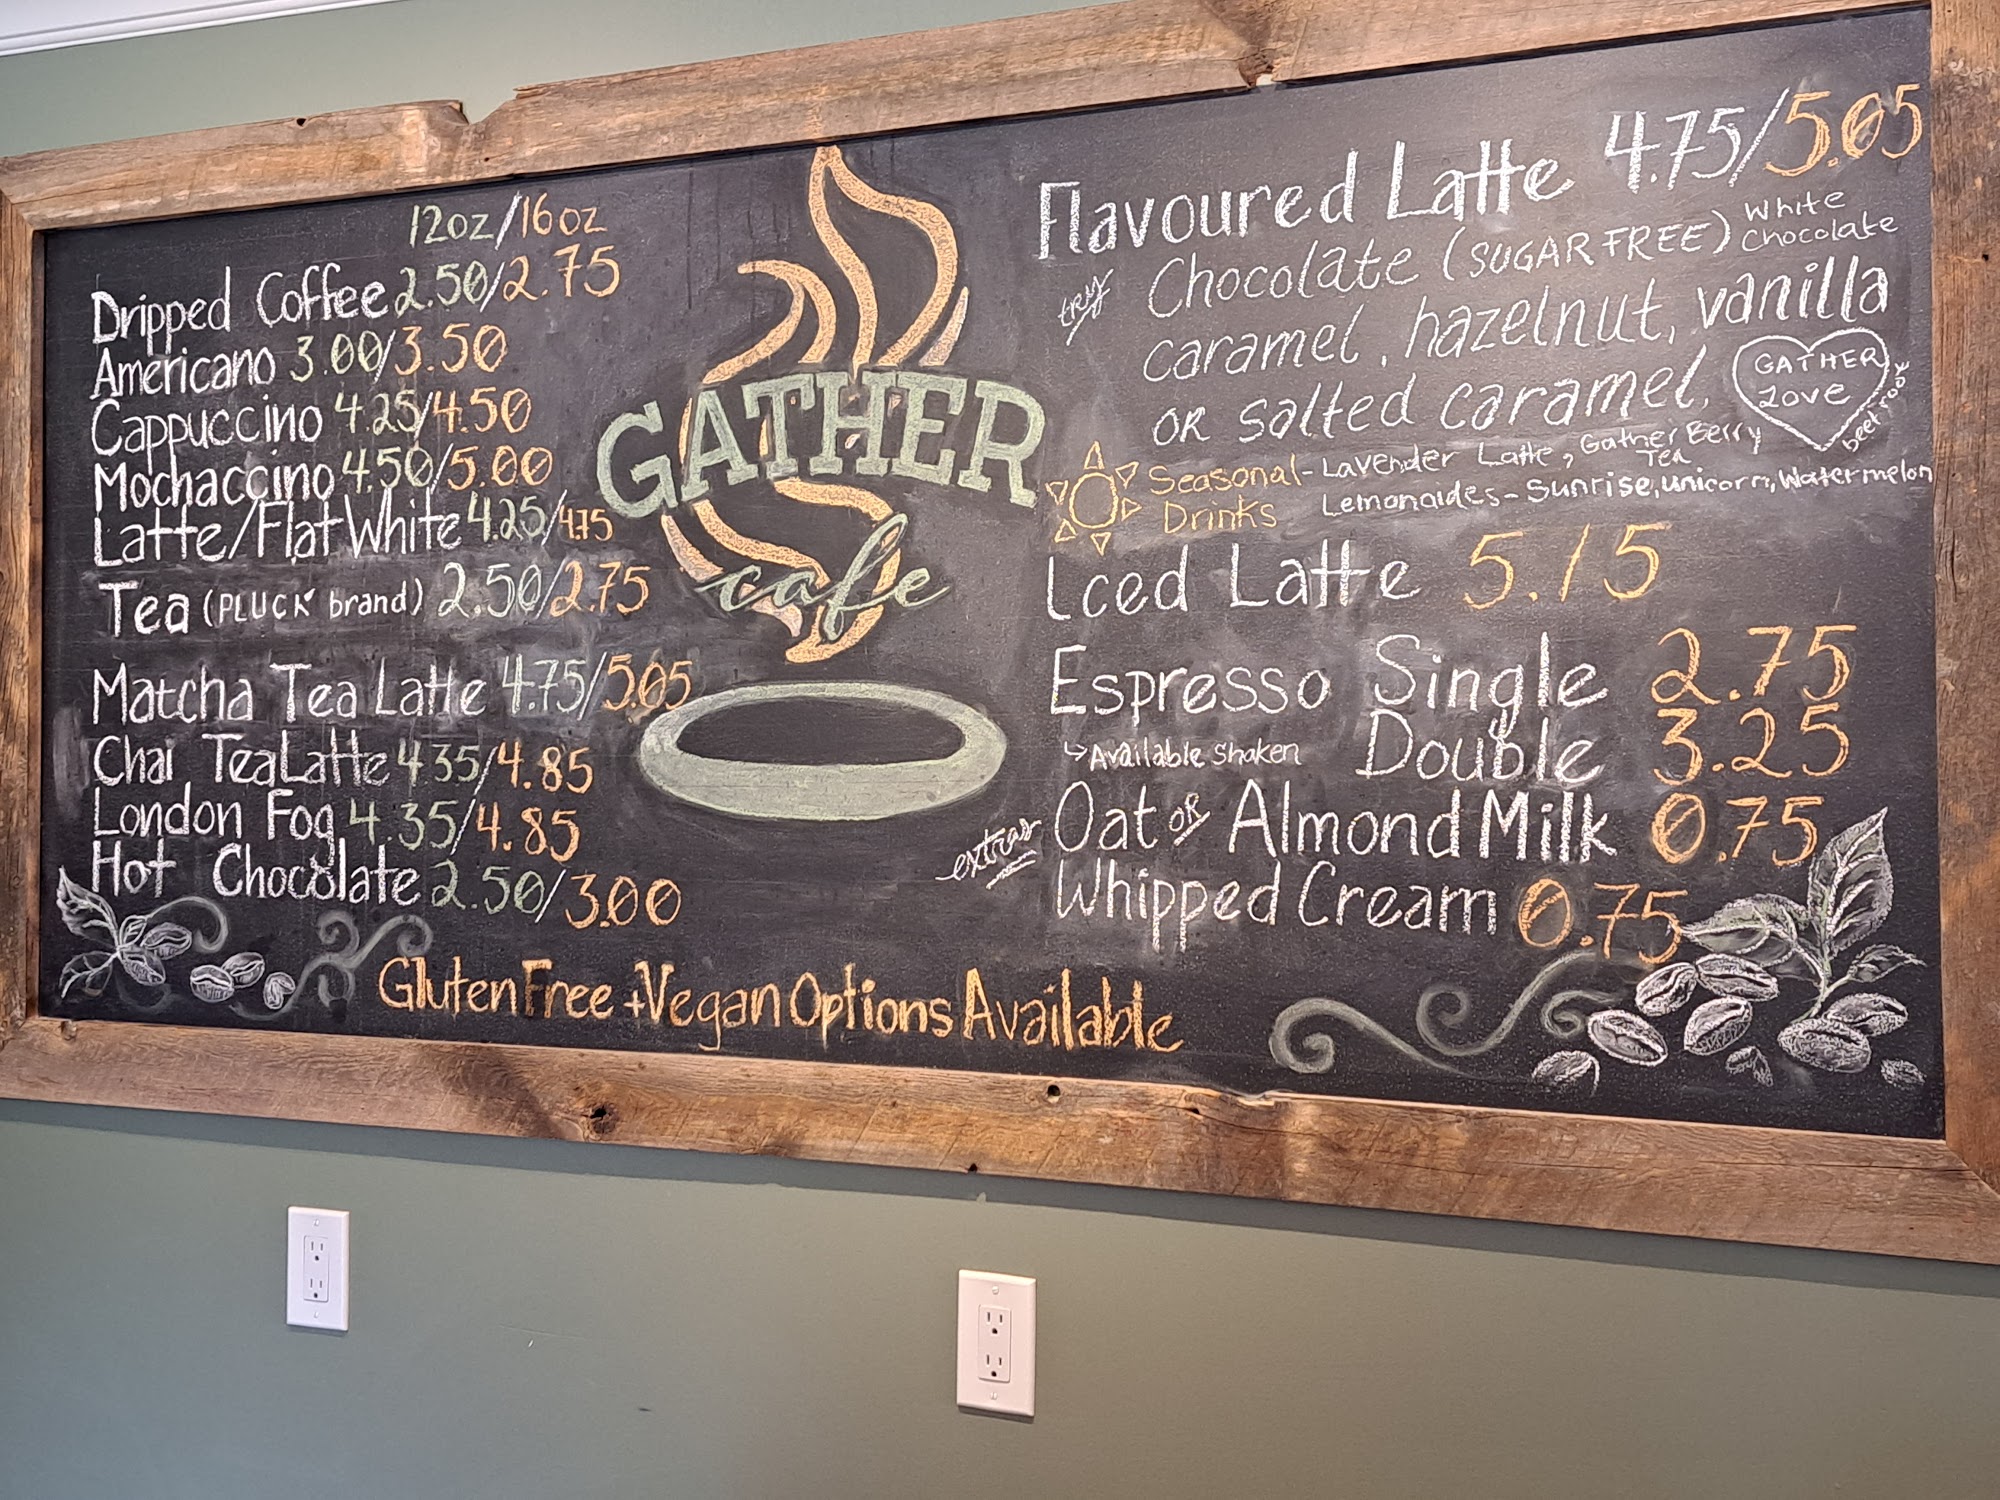 12oz/16oz
Dripped Coffee 2.50/2.75
Americano 3.00/3.50
Cappuccino 4.25/4.50
Mochaccino 4.50/5.00
Latte/Flat White 4.25/4.75
Tea (PLUCK brand) 2.50/2.75
Matcha Tea Latte 4.75/5.05
Chai Tea Latte 4.35/4.85
London Fog 4.35/4.85
Hot Chocolate 2.50/3.00
GATHER
cafe
Gluten Free + Vegan Options Available
Flavoured Latte 4.75/5.05
try Chocolate (SUGAR FREE) White Chocolate
caramel, hazelnut, vanilla
OR salted caramel.
GATHER
Love
beet root
Seasonal - Lavender Latte, Gather Berry Tea
Drinks Lemonaides - Sunrise, unicorn, Watermelon
Iced Latte 5.15
Espresso Single 2.75
↳ Available Shaken Double 3.25
extras Oat OR Almond Milk 0.75
Whipped Cream 0.75